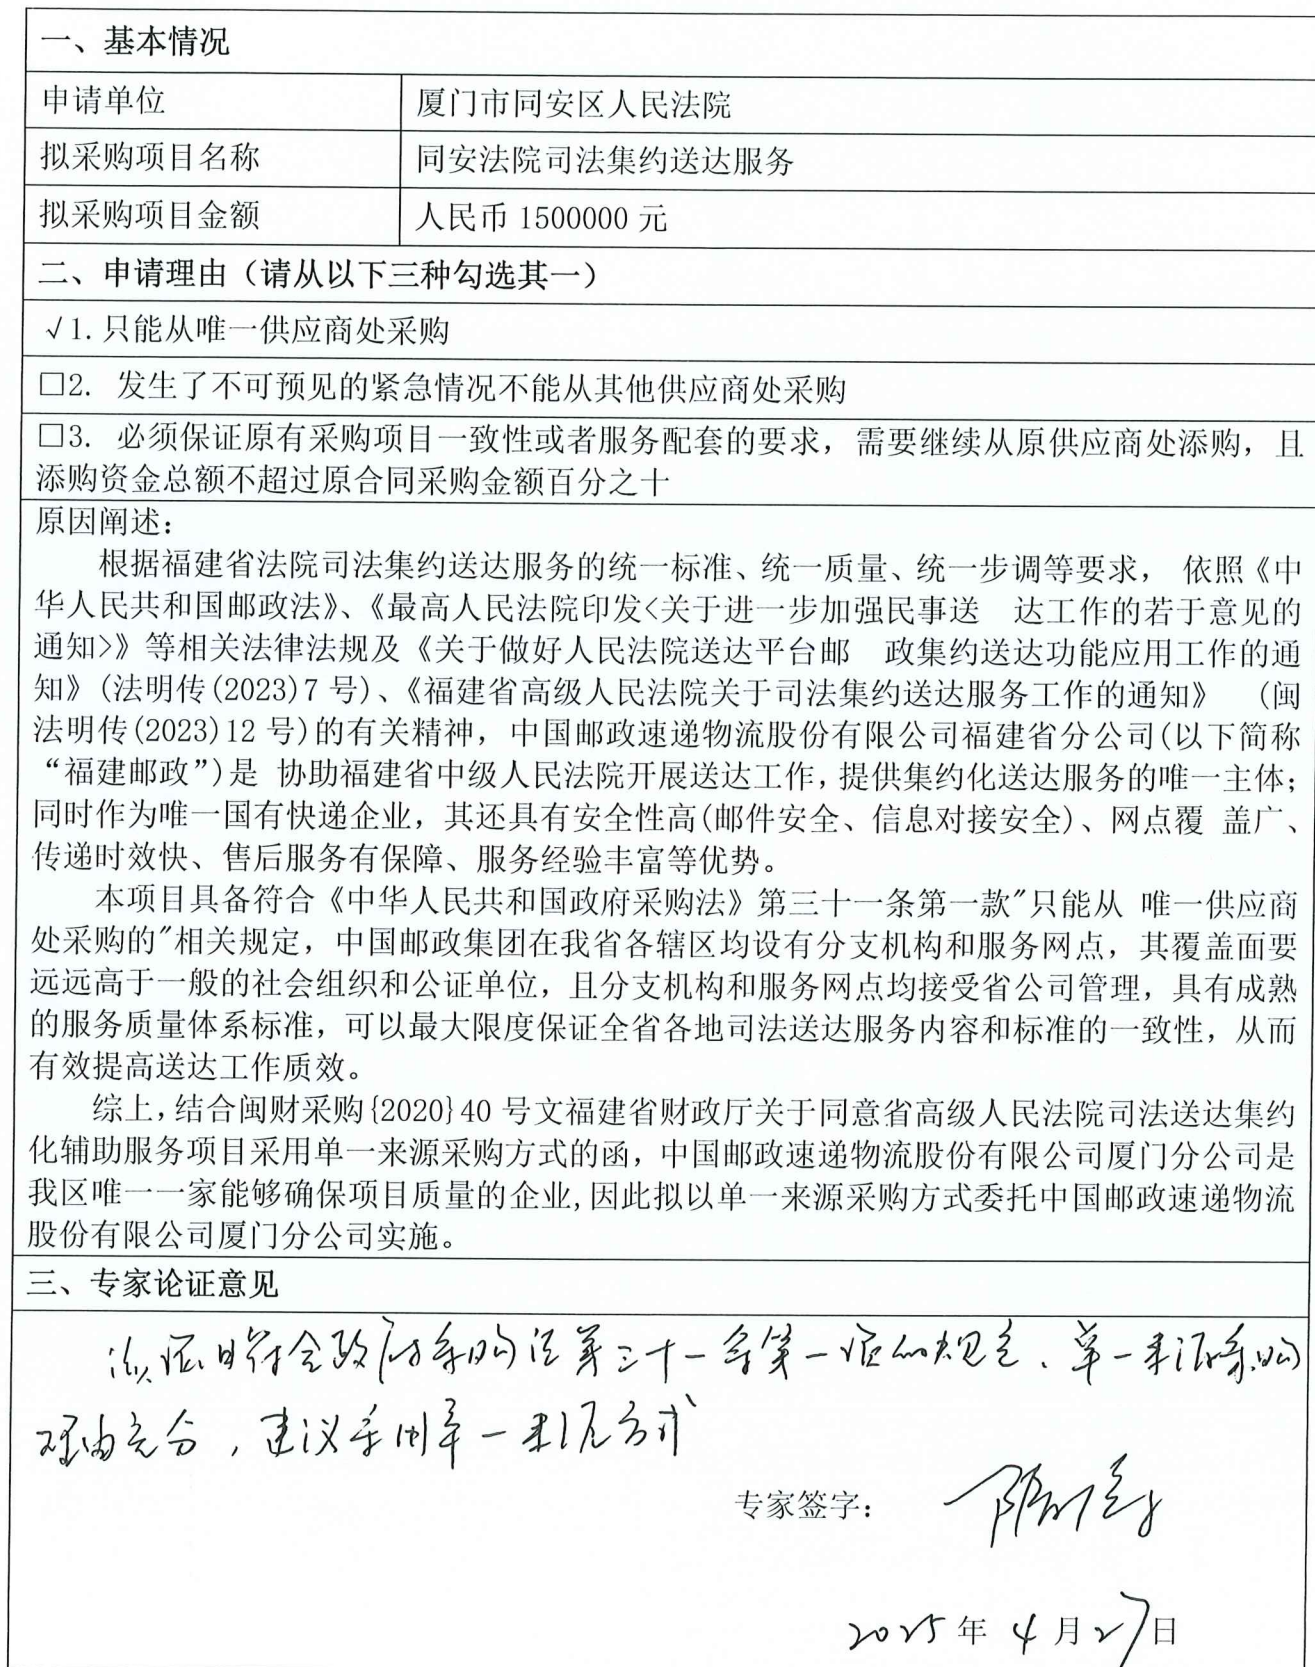 一、基本情况
申请单位 厦门市同安区人民法院
拟采购项目名称 同安法院司法集约送达服务
拟采购项目金额 人民币 1500000 元
二、申请理由（请从以下三种勾选其一）
√1.只能从唯一供应商处采购
□2. 发生了不可预见的紧急情况不能从其他供应商处采购
□3. 必须保证原有采购项目一致性或者服务配套的要求，需要继续从原供应商处添购，且
添购资金总额不超过原合同采购金额百分之十
原因阐述：
根据福建省法院司法集约送达服务的统一标准、统一质量、统一步调等要求， 依照《中
华人民共和国邮政法》、《最高人民法院印发<关于进一步加强民事送 达工作的若于意见的
通知>》等相关法律法规及《关于做好人民法院送达平台邮 政集约送达功能应用工作的通
知》(法明传(2023)7 号)、《福建省高级人民法院关于司法集约送达服务工作的通知》 (闽
法明传(2023)12 号)的有关精神，中国邮政速递物流股份有限公司福建省分公司(以下简称
“福建邮政”)是 协助福建省中级人民法院开展送达工作,提供集约化送达服务的唯一主体；
同时作为唯一国有快递企业，其还具有安全性高(邮件安全、信息对接安全)、网点覆 盖广、
传递时效快、售后服务有保障、服务经验丰富等优势。
本项目具备符合《中华人民共和国政府采购法》第三十一条第一款"只能从 唯一供应商
处采购的"相关规定，中国邮政集团在我省各辖区均设有分支机构和服务网点，其覆盖面要
远远高于一般的社会组织和公证单位，且分支机构和服务网点均接受省公司管理，具有成熟
的服务质量体系标准，可以最大限度保证全省各地司法送达服务内容和标准的一致性，从而
有效提高送达工作质效。
综上,结合闽财采购{2020}40 号文福建省财政厅关于同意省高级人民法院司法送达集约
化辅助服务项目采用单一来源采购方式的函，中国邮政速递物流股份有限公司厦门分公司是
我区唯一一家能够确保项目质量的企业,因此拟以单一来源采购方式委托中国邮政速递物流
股份有限公司厦门分公司实施。
三、专家论证意见
该项目符合政府采购法第三十一条第一项的规定、单一来源采购
理由充分，建议采用单一来源方式
专家签字：
2025 年 4 月 27 日